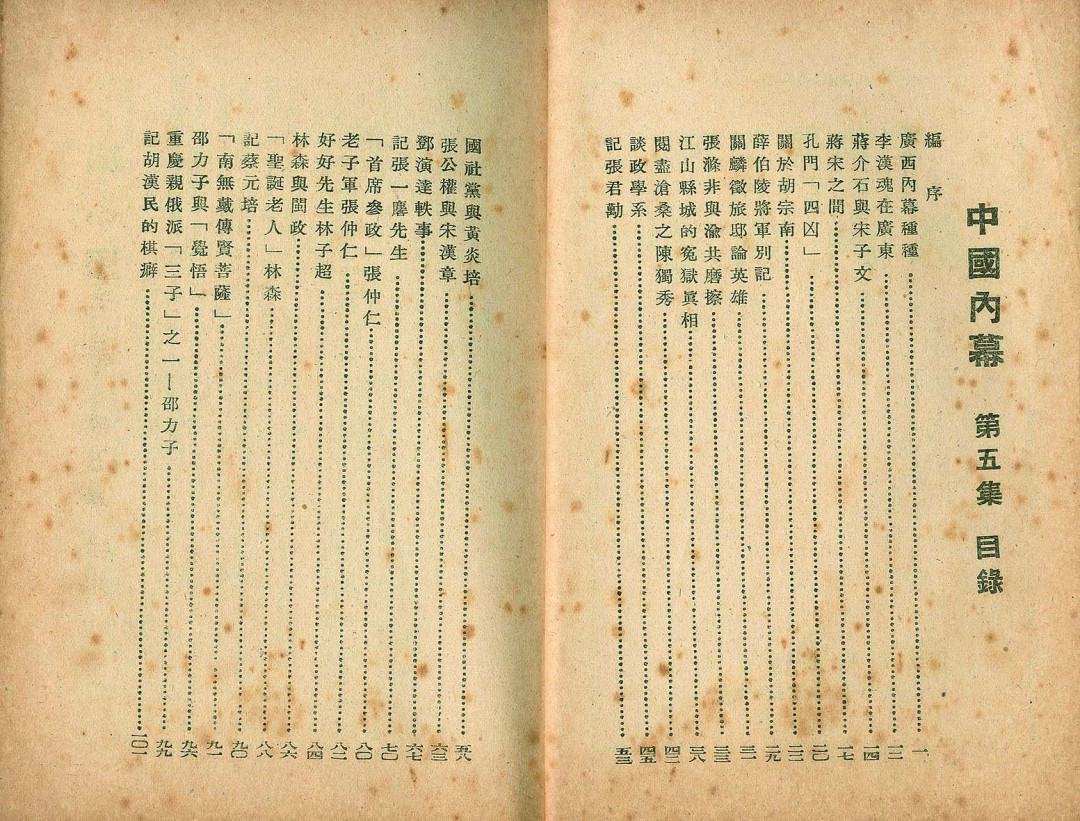 中國內幕 第五集 目錄
編序
廣西內幕種種 一
李漢魂在廣東
蔣介石與宋子文 一四
蔣宋之間 一七
孔門「四凶」 二〇
關於胡宗南
薛伯陵將軍別記 二九
關麟徵旅邸論英雄 三一
張滌非與渝共磨擦 三三
江山縣城的冤獄眞相 三八
閱盡滄桑之陳獨秀
談政學系 四五
記張君勱 五三
國社黨與黃炎培 五八
張公權與宋漢章 六三
鄧演達軼事 六七
記張一麐先生 七〇
「首席參政」張仲仁 八〇
老子軍張仲仁
好好先生林子超 八四
林森與閩政 八六
「聖誕老人」林森 八八
記蔡元培 九〇
「南無戴傳賢菩薩」 九一
邵力子與「覺悟」 九六
重慶親俄派「三子」之一—邵力子 九九
記胡漢民的棋癖 一〇一